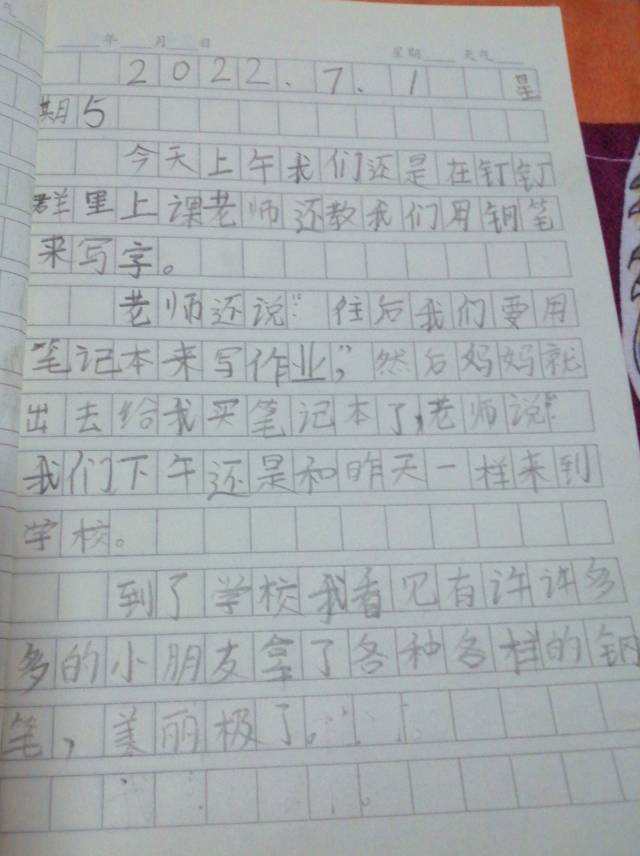 气
年 月 日 星期 天气
2022.7.1 星
期5
今天上午我们还是在钉钉
群里上课老师还教我们用钢笔
来写字。
老师还说“往后我们要用
笔记本来写作业，”然后妈妈就
出去给我买笔记本了，老师说“
我们下午还是和昨天一样来到
学校。
到了学校我看见有许许多
多的小朋友拿了各种各样的钢
笔，美丽极了。